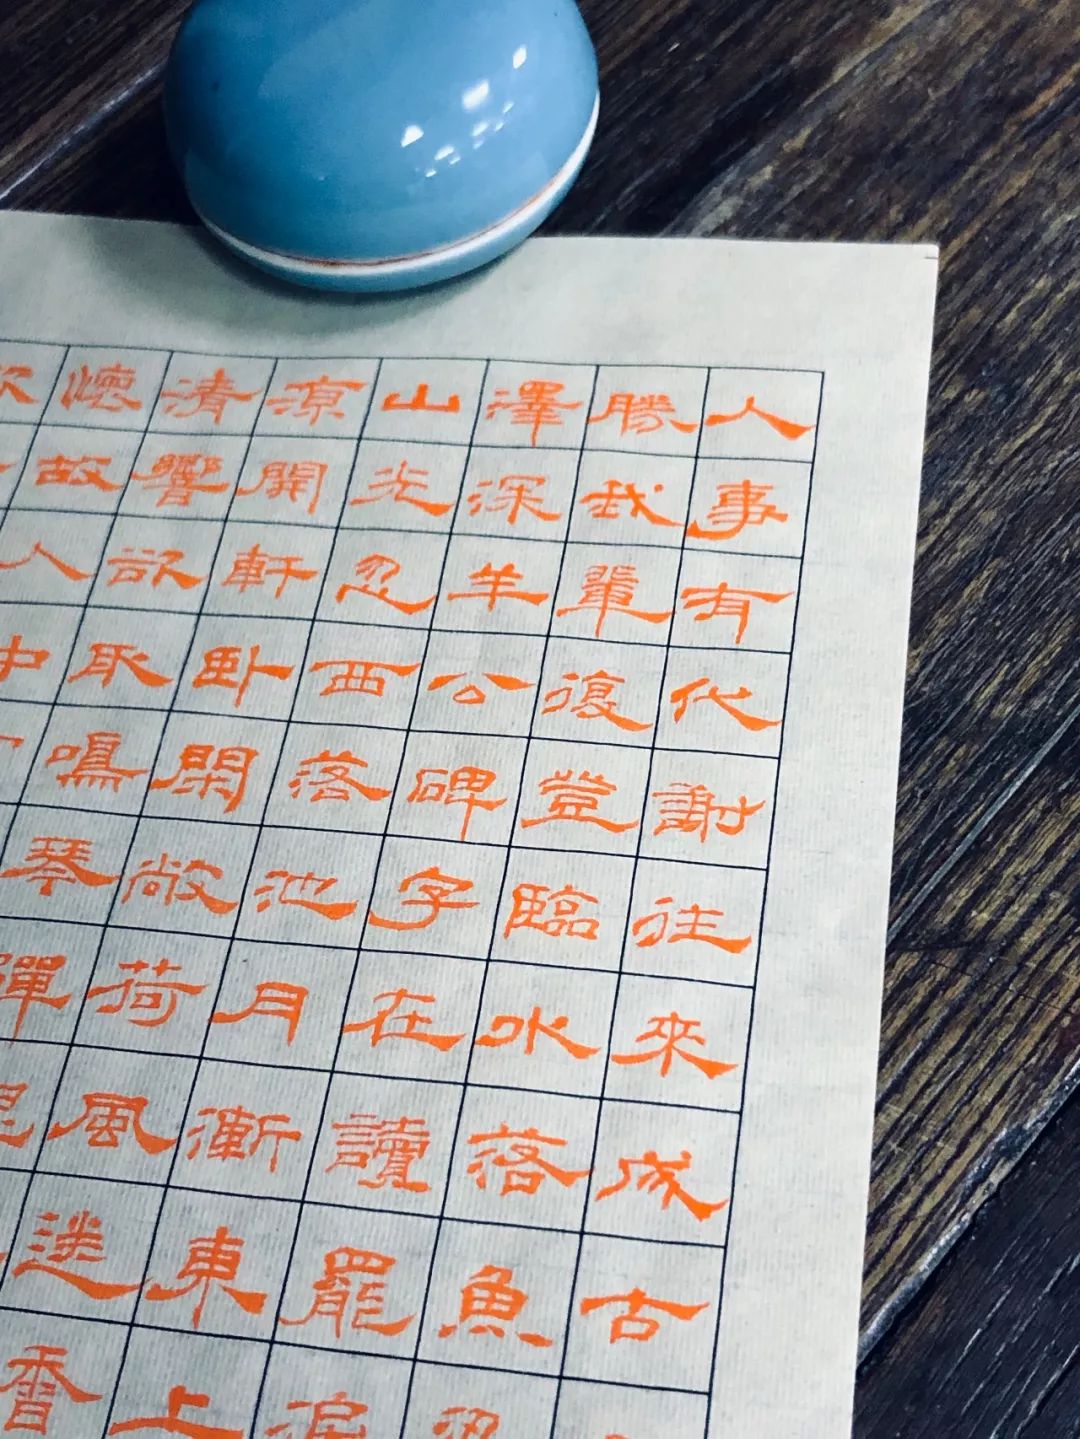 人事有代謝往來成古
勝我輩復登臨水落魚
澤深羊公碑字在讀罷
山光忽西落池月漸東上
涼開軒卧閑敞荷風送香
清響欲取鳴琴彈
懷故人中
欲